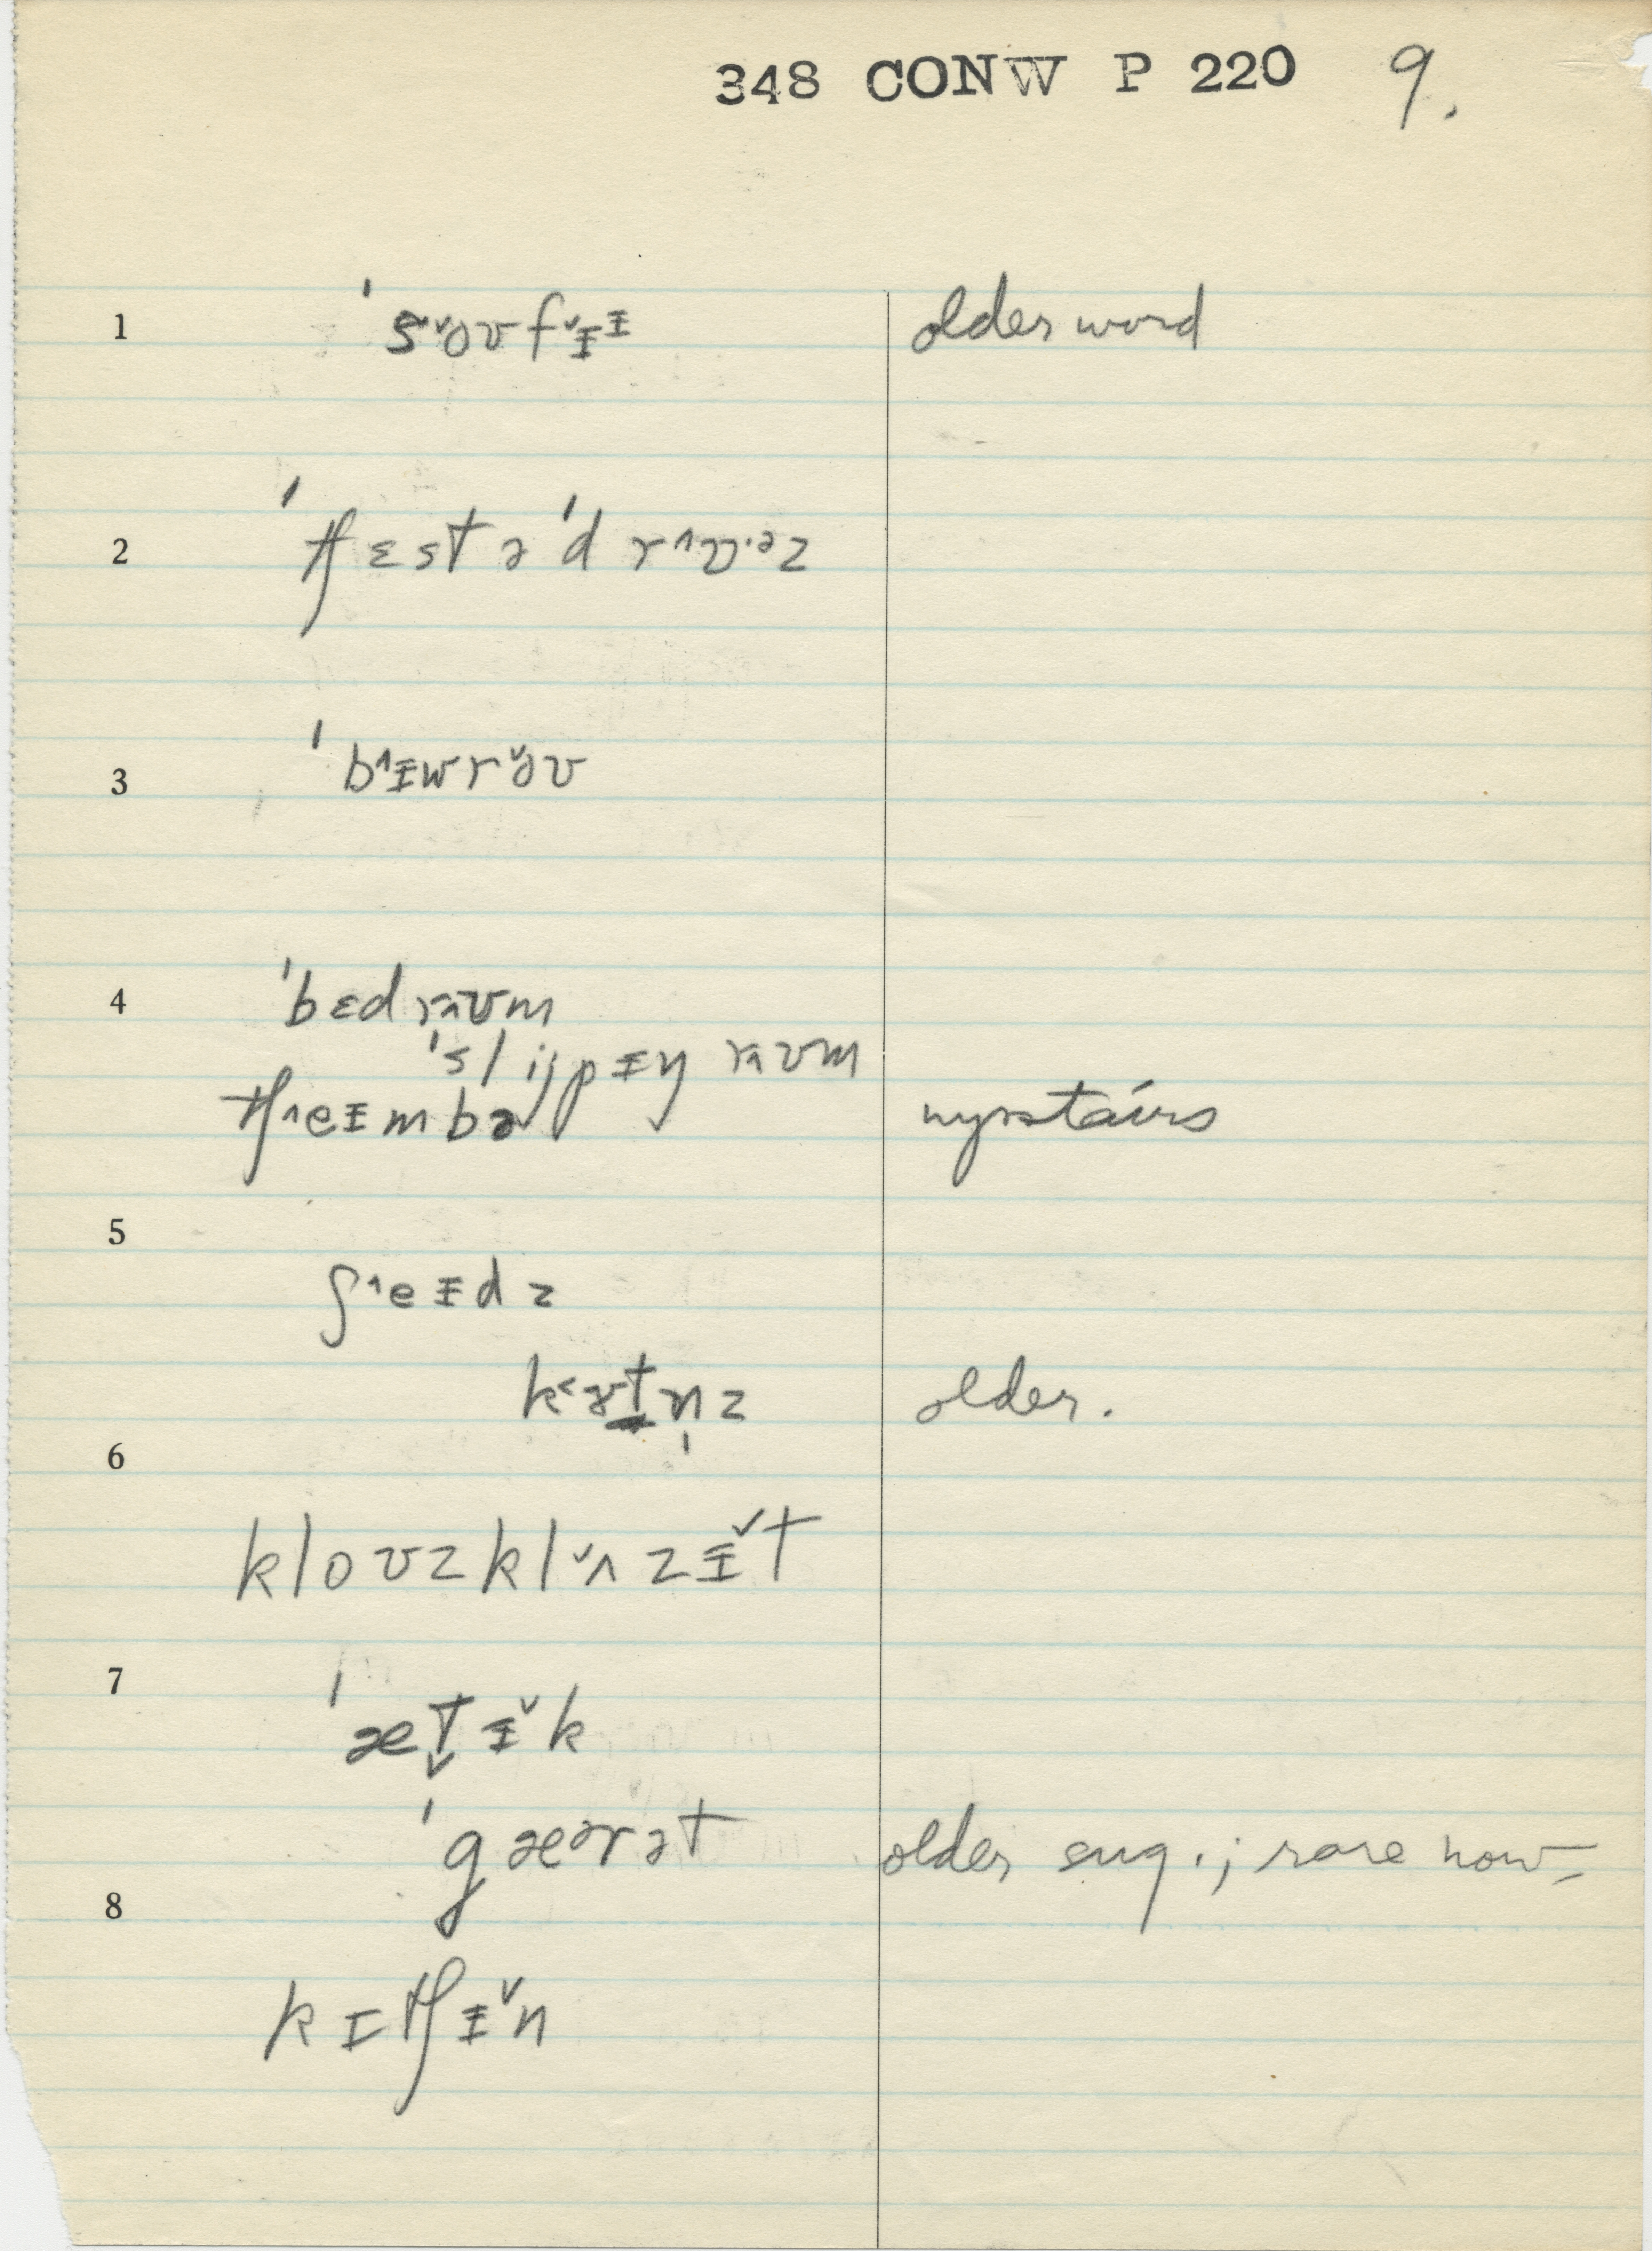 348 CONW P 220 9.
1 ˈs˅oʊf˅ɪ̵ɪ̵ older word
2 ˈtʃɛstəˈd r^ɔɔ.əz
3 ˈb^ɪ̵wr˅oʊ
4 ˈbɛdr^ʊm
ˈslijpɪ̵ŋ r^ʊm
tʃ^eɪ̵mbə upstairs
5
ʃ^eɪ̵dz
k˂ɜt̠n̩z older.
6
kloʊzkl˅ʌzɪ̵˅t
7
ˈæt̬ɪ̵˅k
ˈgæərət older sug.; rare now
8
kɪtʃɪ̵˅n